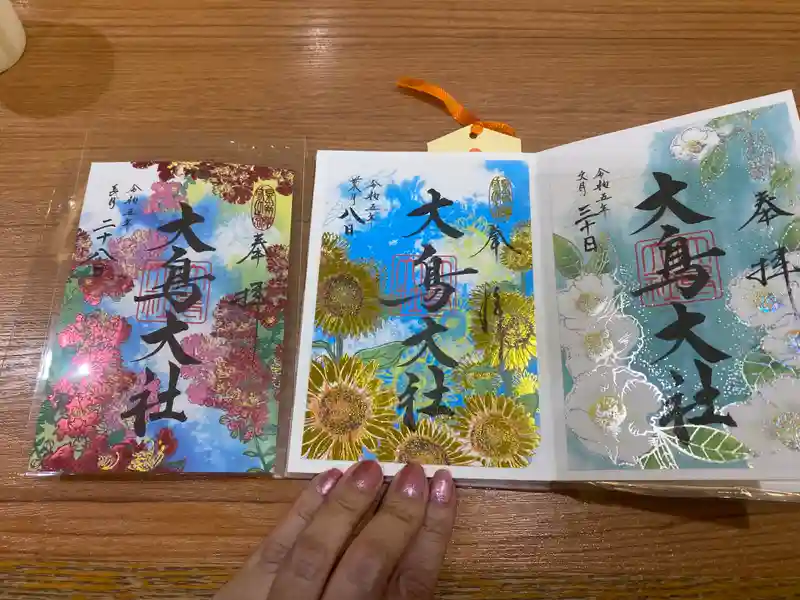 奉拝
大鳥大社
令和五年
二十八日
奉拝
大鳥大社
令和五年
葉月八日
奉拝
大鳥大社
令和五年
文月三十日